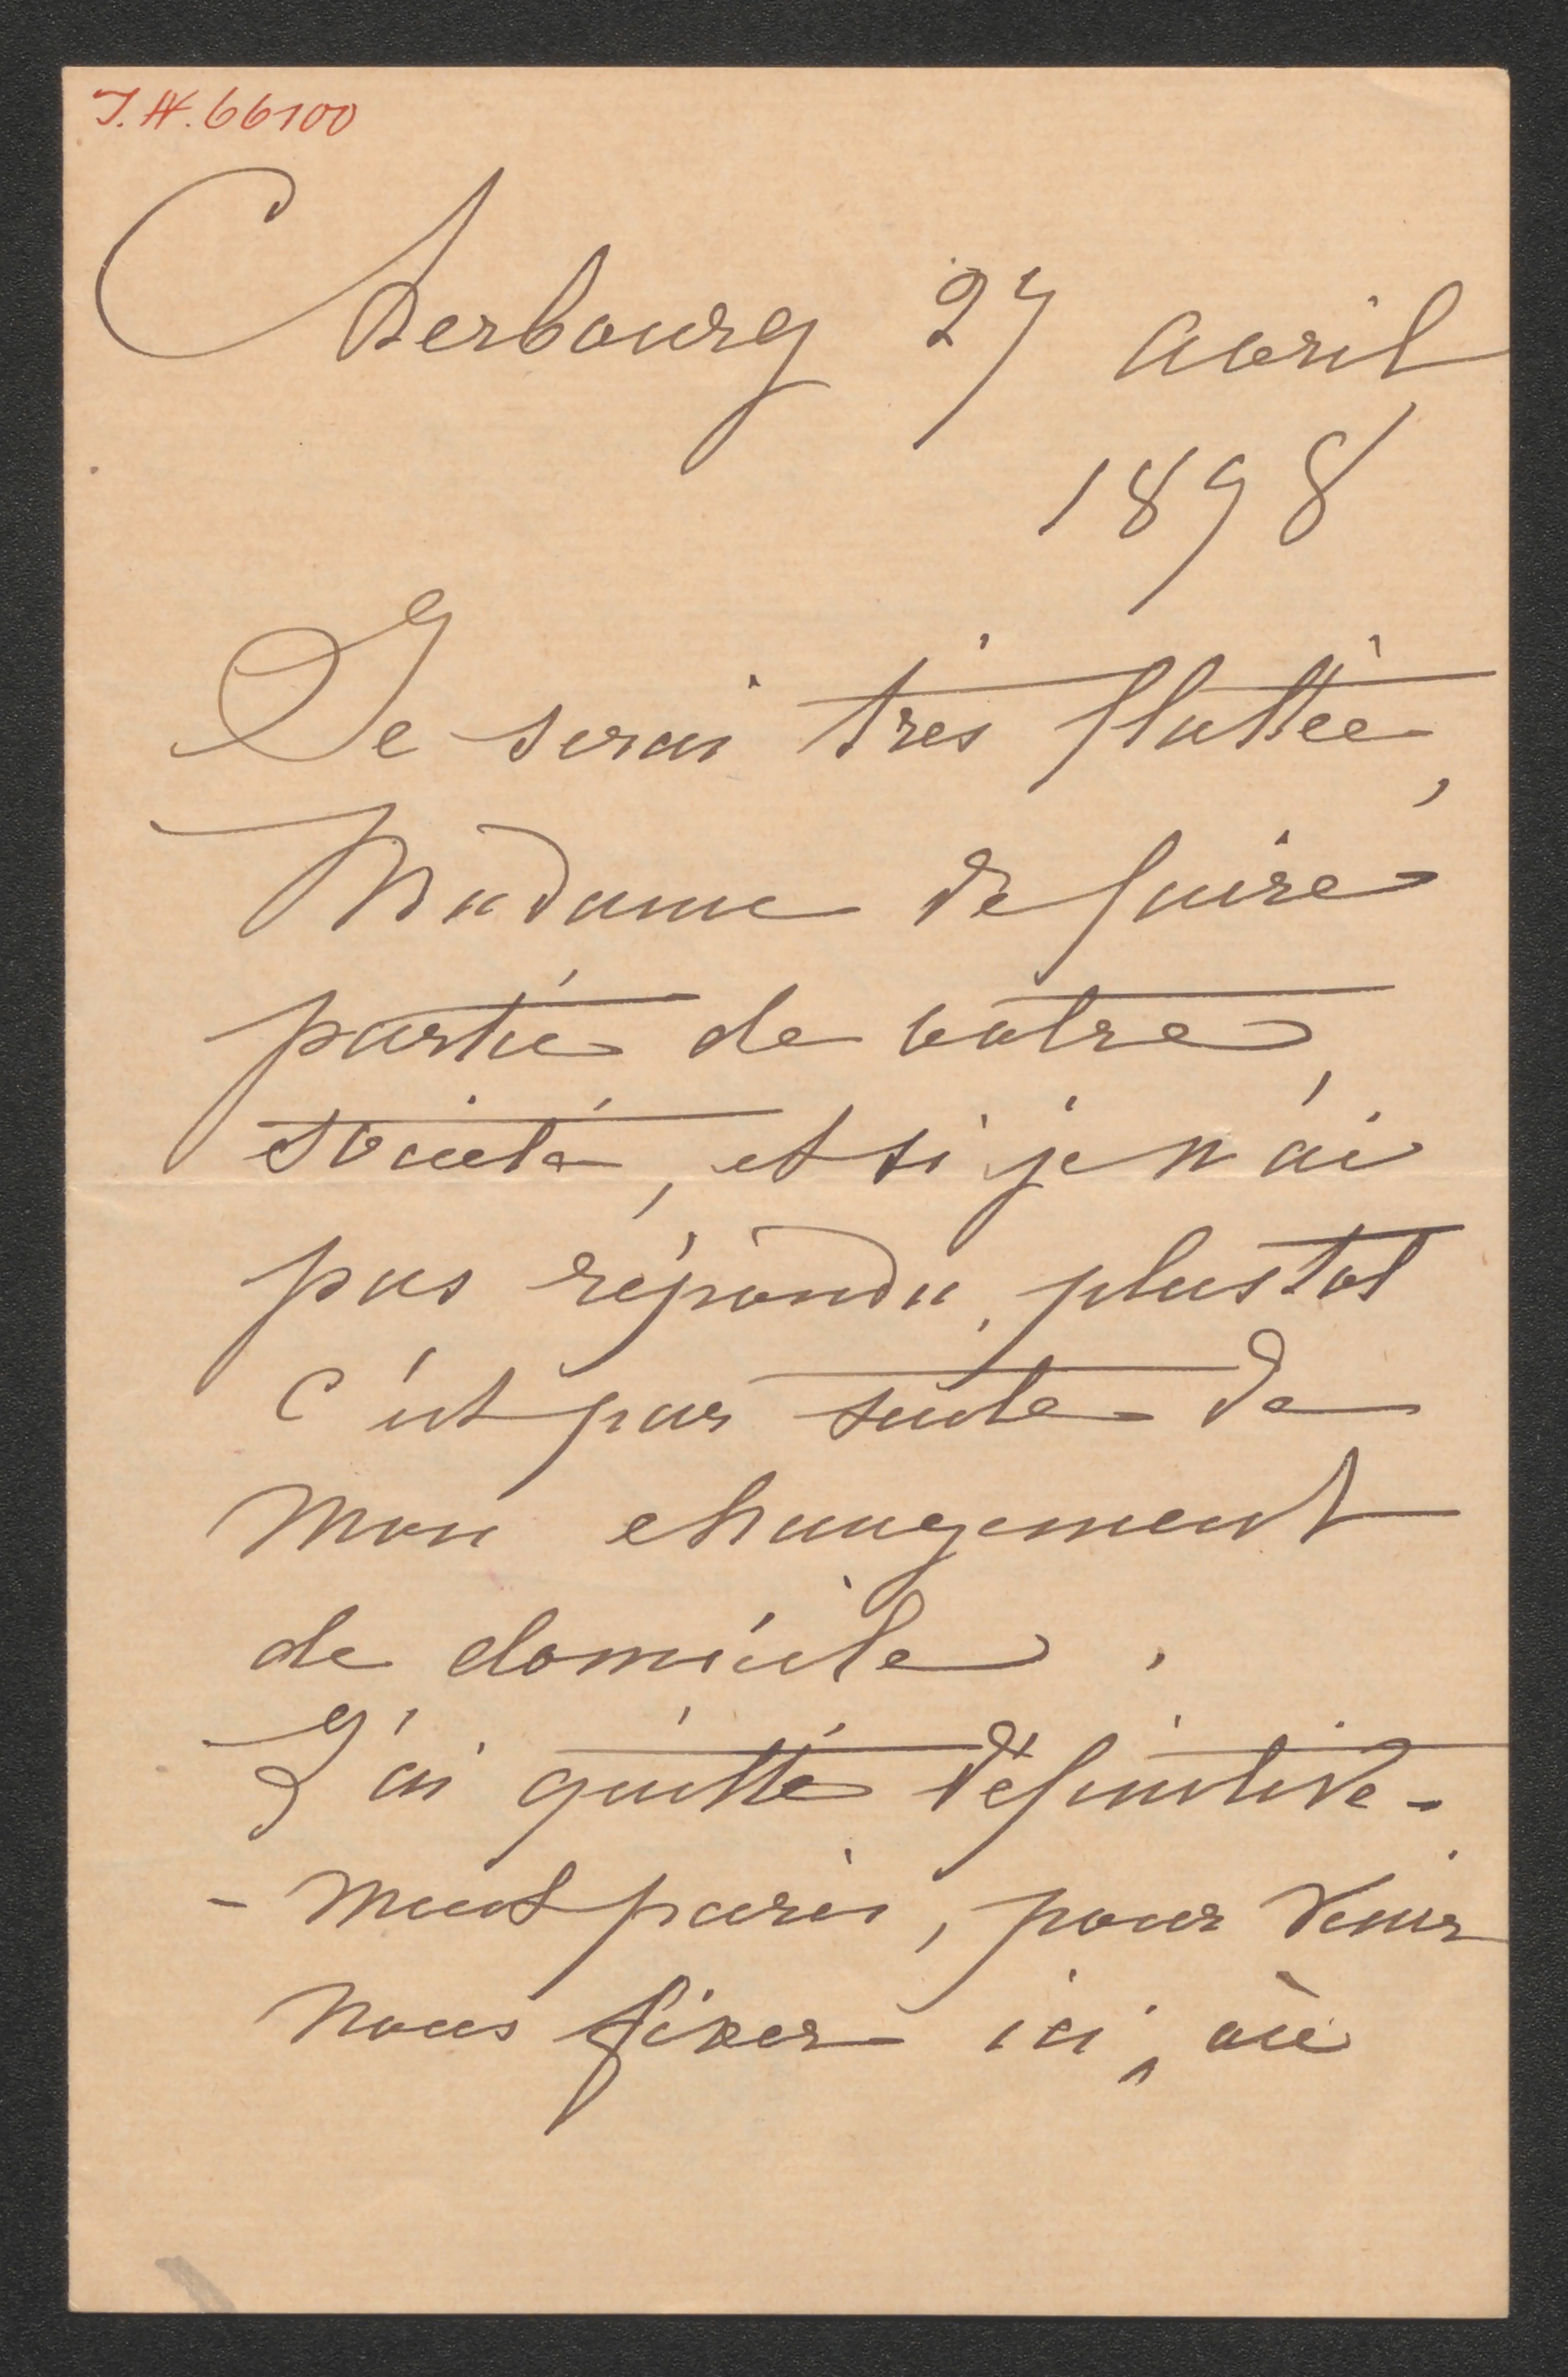 J.N. 66100
Cherbourg 27 avril
1898
Je serai très flattée,
Madame de faire
partie de votre
société, et si je n'ai
pas répondu, plus tot
c'est par suite de
mon changement
de domicile.
J'ai quitté définitive-
- ment paris, pour venir
nous fixer ici, où